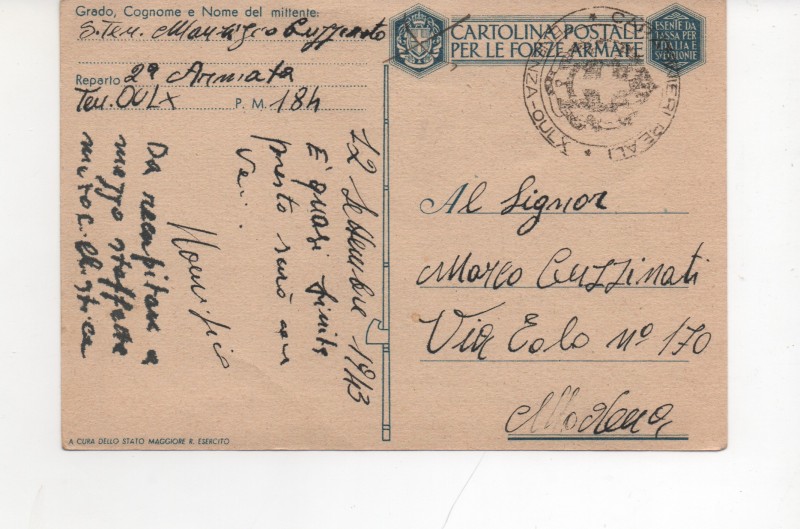 Grado, Cognome e Nome del mittente:
S.Ten. Maurizio
Reparto 2ª Armata
Ten. OULX P. M. 184
CARTOLINA POSTALE
PER LE FORZE ARMATE
ESENTE DA
TASSA PER
L'ITALIA E
S. V. COLONIE
CARABINIERI REALI
OULX
Al Signor
Marco Cuzzinati
Via Eolo nº 170
Modena
12 Settembre 1943
E' quasi finita
presto sarò con
Voi.
Maurizio
Da recapitare a
mezzo staffetta
motociclistica
A CURA DELLO STATO MAGGIORE R. ESERCITO